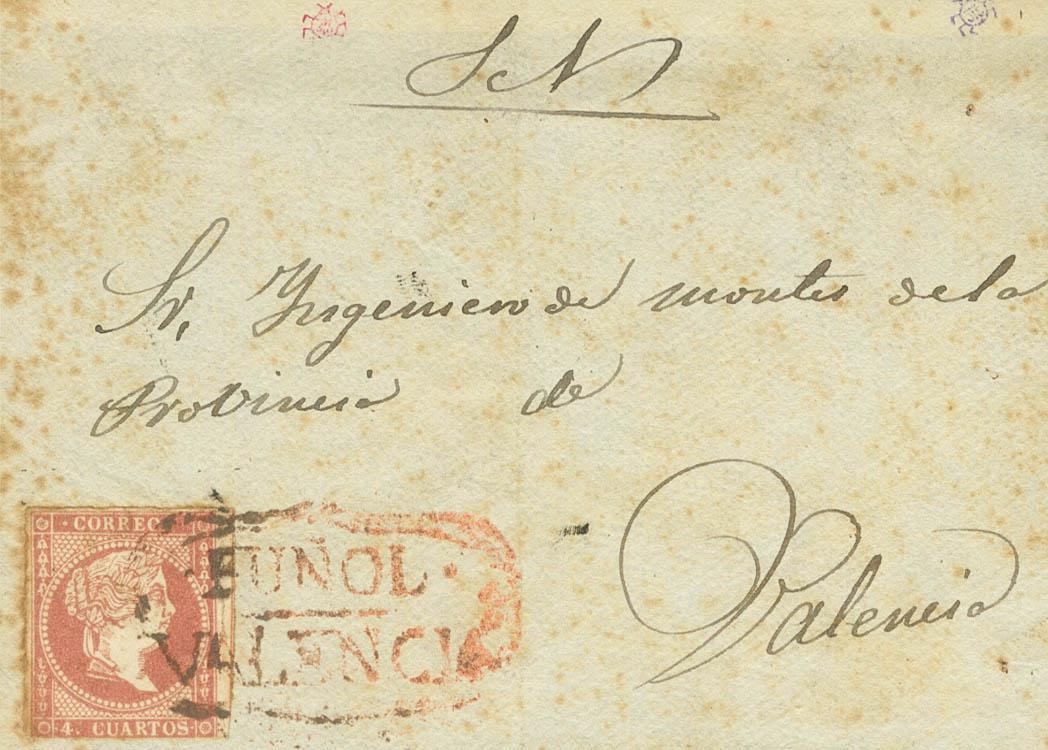 S N
Sr. Yngeniero de montes de la
Provincia de
Valencia
CORREOS
4. CUARTOS
BUÑOL
VALENCIA